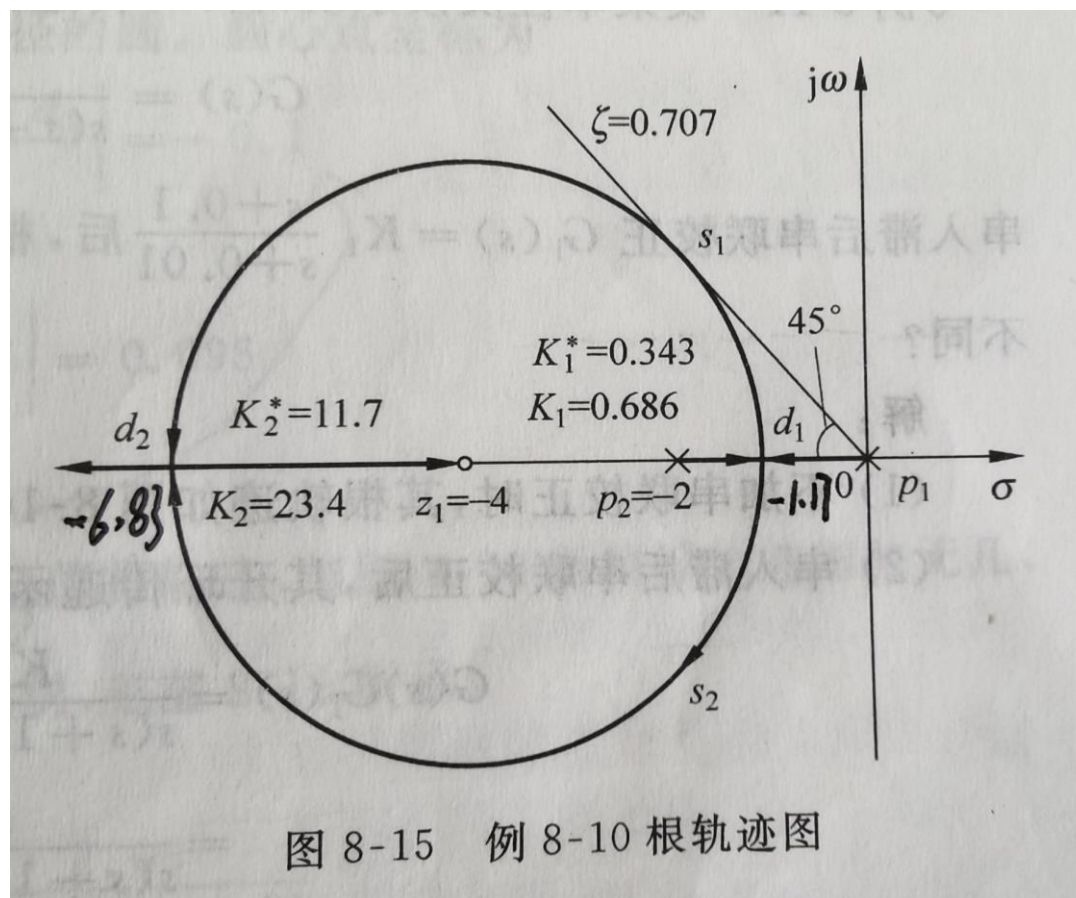 jω
ζ=0.707
s₁
45°
K₁*=0.343
K₁=0.686
d₁
d₂
K₂*=11.7
K₂=23.4
z₁=-4
p₂=-2
0
p₁
σ
-6.83
-1.17
s₂
图 8-15 例 8-10 根轨迹图